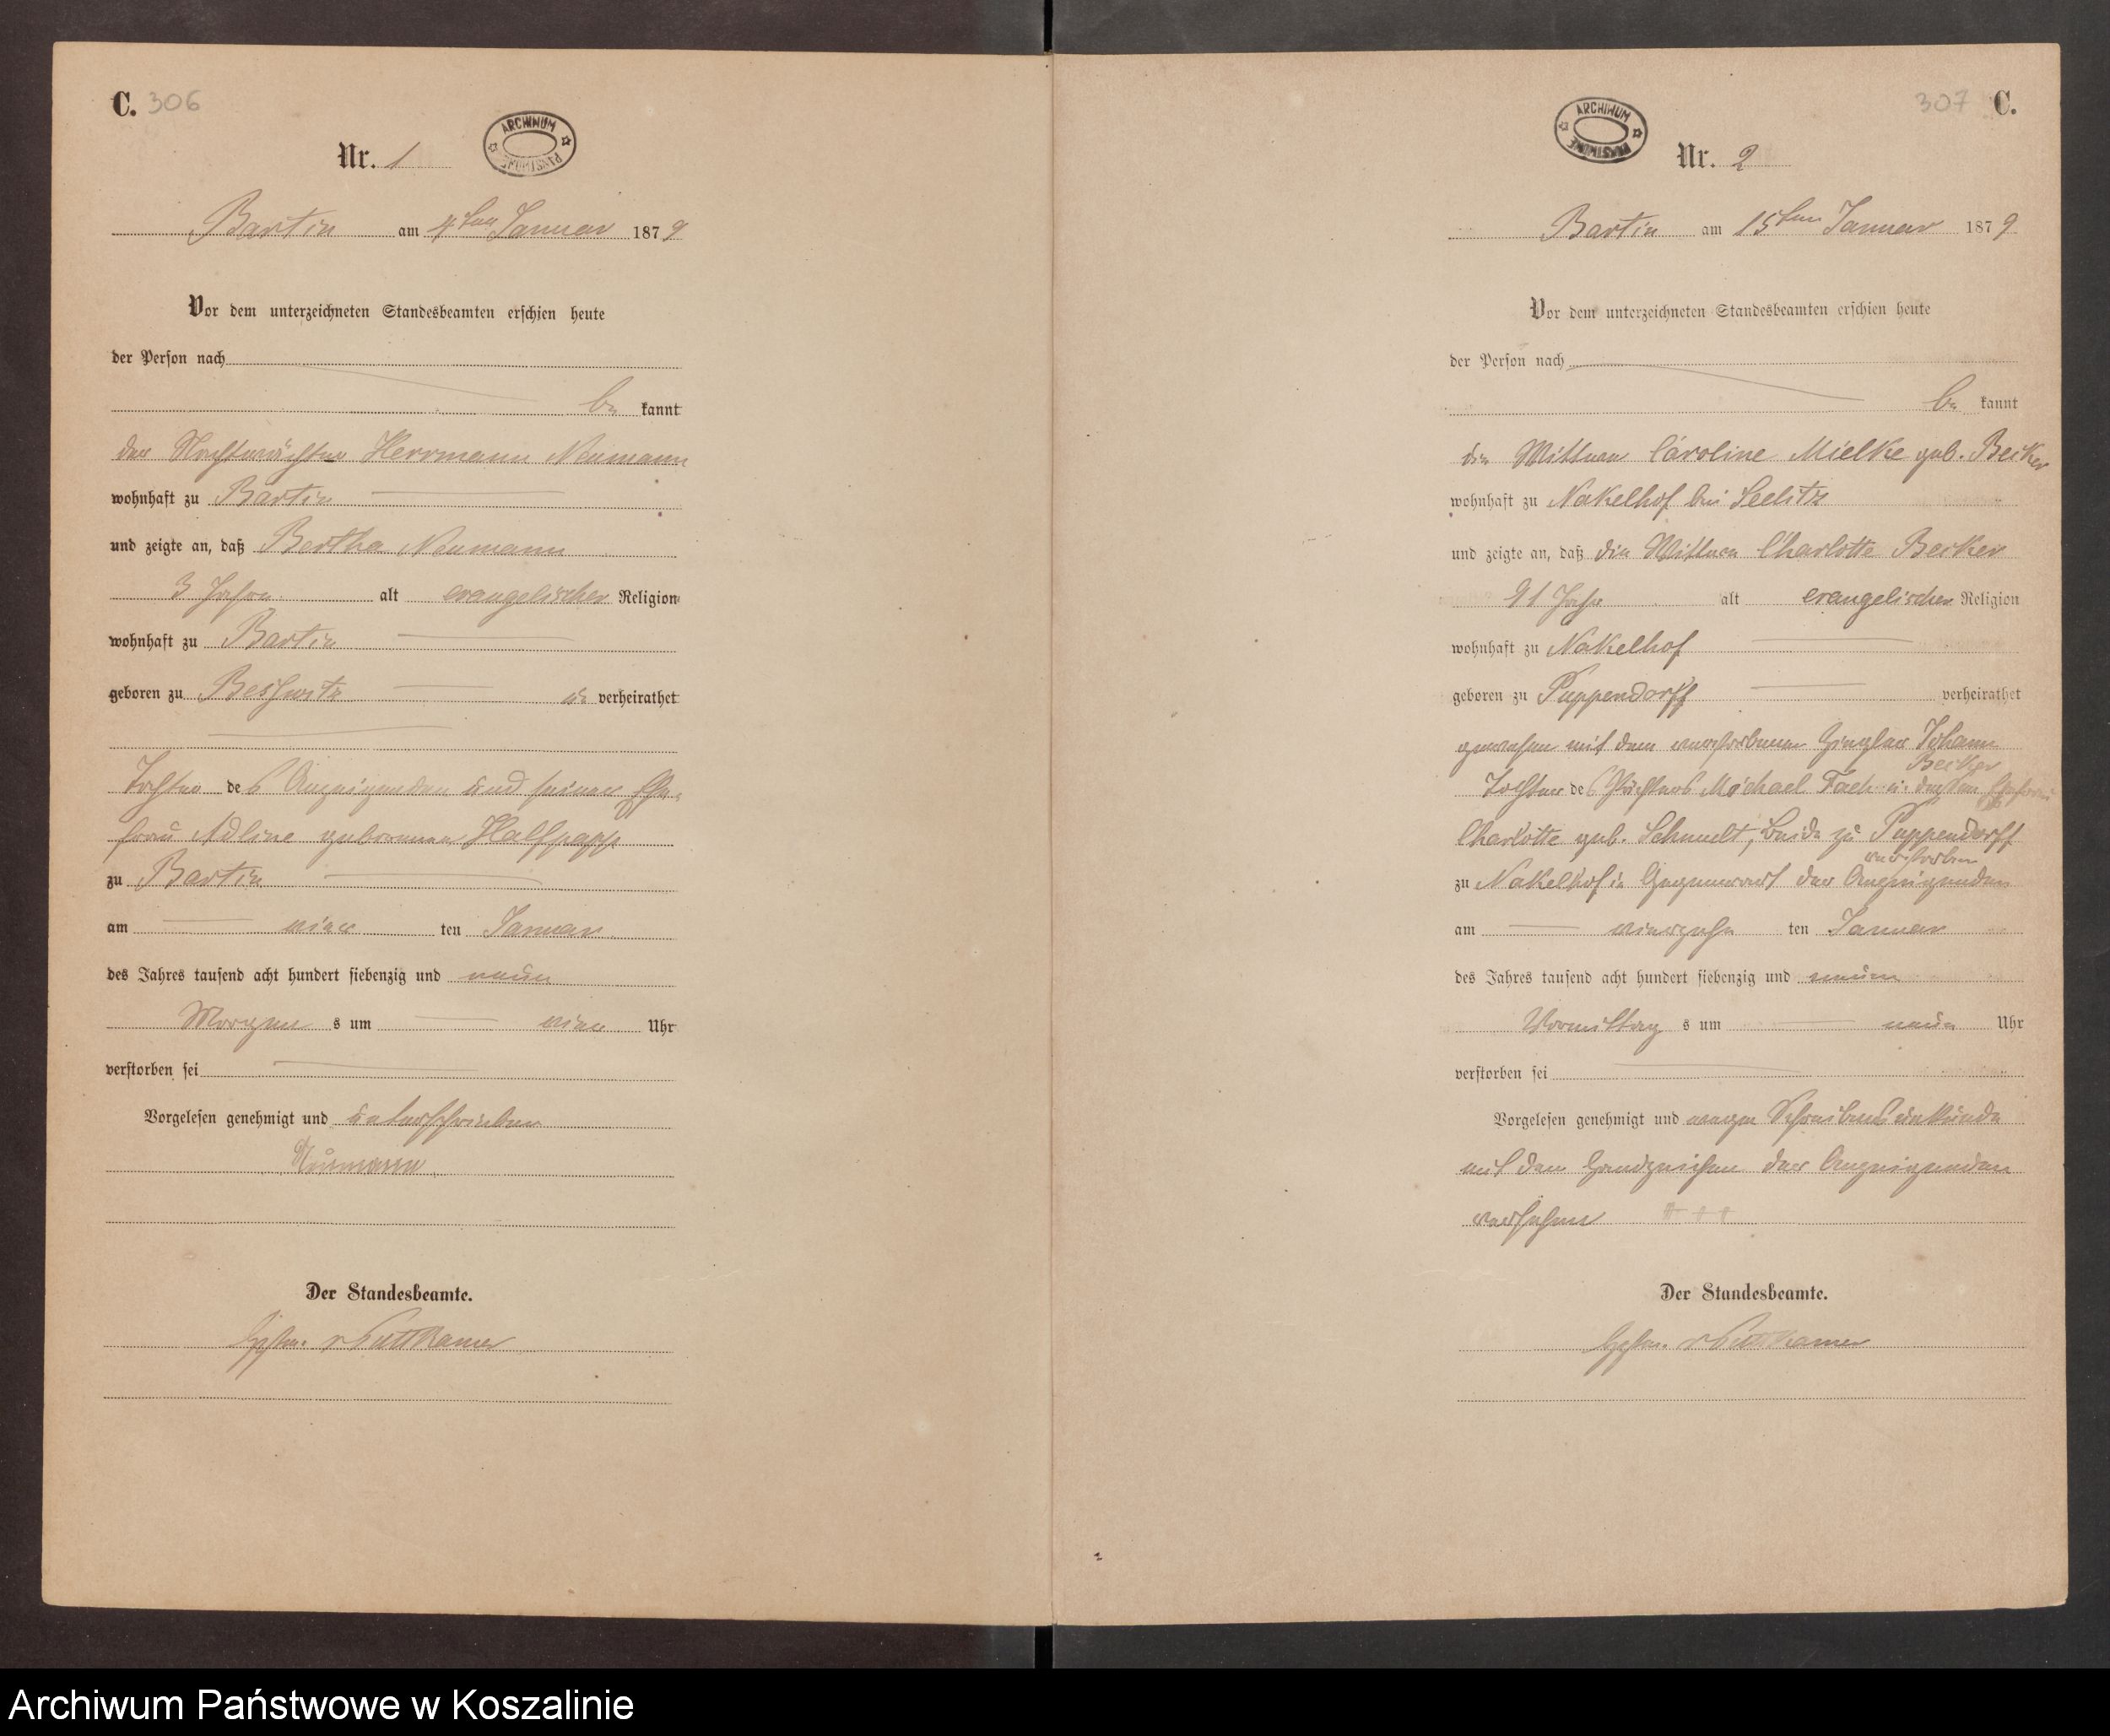 C. 306
ARCHIWUM PAŃSTWOWE
Nr. 1
Bartin am 4ten Januar 1879
Vor dem unterzeichneten Standesbeamten erschien heute
der Person nach
be kannt
der Nachtwächter Herrmann Neumann
wohnhaft zu Bartin
und zeigte an, daß Bertha Neumann
3 Jahre alt evangelischer Religion
wohnhaft zu Bartin
geboren zu Beßwitz un verheirathet
Tochter des Anzeigenden und seiner Ehe-
frau Adline geborenen Halfpapp
zu Bartin
am vier ten Januar
des Jahres tausend acht hundert siebenzig und neun
Morgen s um vier Uhr
verstorben sei
Vorgelesen genehmigt und unterschrieben
Neumann
Der Standesbeamte.
v Puttkamer
307 C.
ARCHIWUM PAŃSTWOWE
Nr. 2
Bartin am 15ten Januar 1879
Vor dem unterzeichneten Standesbeamten erschien heute
der Person nach
be kannt
die Wittwe Caroline Mielke geb. Becker
wohnhaft zu Nakelhof bei Seelitz
und zeigte an, daß die Wittwe Charlotte Becker
91 Jahr alt evangelischer Religion
wohnhaft zu Nakelhof
geboren zu Puppendorff verheirathet
gewesen mit dem verstorbenen Johann
Becker
Tochter des Michael u. dessen Ehefrau
Charlotte geb. beide zu Puppendorff
verstorben
zu Nakelhof in Gegenwart der Anzeigenden
am vierzehn ten Januar
des Jahres tausend acht hundert siebenzig und neun
Vormittag s um neun Uhr
verstorben sei
Vorgelesen genehmigt und wegen Schreibensunkunde
mit dem Handzeichen der Anzeigenden
versehen +++
Der Standesbeamte.
v Puttkamer
Archiwum Państwowe w Koszalinie